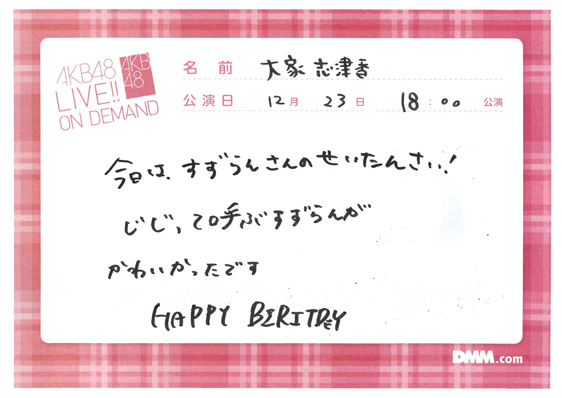 AKB48
LIVE!!
ON DEMAND
AKB
48
名前 大家志津香
公演日 12月 23日 18:00 公演
今日は、すずらんさんのせいたんさい!
じじって呼ぶすずらんが
かわいかったです
HAPPY BERITDEY
DMM.com